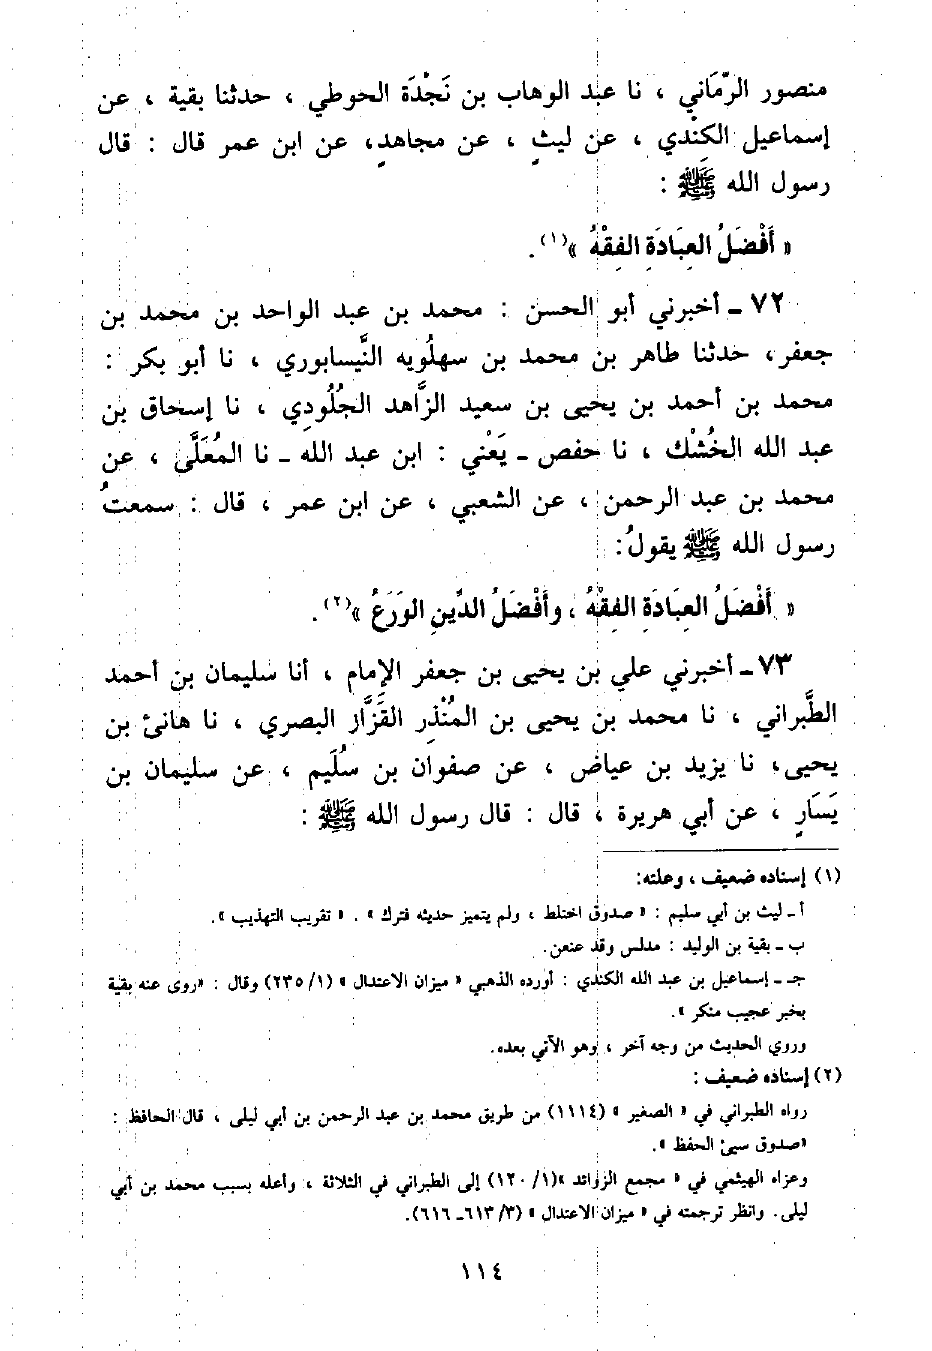 منصور الرّمَاني ، نا عبد الوهاب بن نَجْدَة الحوطي ، حدثنا بقية ، عن
إسماعيل الكِنْدي ، عن ليثٍ ، عن مجاهدٍ، عن ابن عمر قال : قال
رسول الله ﷺ :
« أَفْضَلُ العِبَادَةِ الفِقْهُ »(١).
٧٢ ـ أخبرني أبو الحسن : محمد بن عبد الواحد بن محمد بن
جعفر، حدثنا طاهر بن محمد بن سهلُويه النَّيسابوري ، نا أبو بكر :
محمد بن أحمد بن يحيى بن سعيد الزَّاهد الجُلُودِي ، نا إسحاق بن
عبد الله الخُشْك ، نا حفص ـ يَعْني : ابن عبد الله ـ نا المُعَلَّى ، عن
محمد بن عبد الرحمن ، عن الشعبي ، عن ابن عمر ، قال : سمعتُ
رسول الله ﷺ يقولُ:
« أَفْضَلُ العِبَادَةِ الفِقْهُ ، وأَفْضَلُ الدِّينِ الوَرَعُ »(٢).
٧٣ ـ أخبرني علي بن يحيى بن جعفر الإمام ، أنا سليمان بن أحمد
الطَّبراني ، نا محمد بن يحيى بن المُنْذِر القَزَّاز البصري ، نا هانئ بن
يحيى، نا يزيد بن عياض ، عن صفوان بن سُلَيم ، عن سليمان بن
يَسَارٍ ، عن أبي هريرة ، قال : قال رسول الله ﷺ :
(١) إسناده ضعيف ، وعلته:
أ ـ ليث بن أبي سليم : « صدوق اختلط ، ولم يتميز حديثه فترك » . « تقريب التهذيب ».
ب ـ بقية بن الوليد : مدلس وقد عنعن.
جـ ـ إسماعيل بن عبد الله الكندي : أورده الذهبي « ميزان الاعتدال » (١/ ٢٣٥) وقال : «روى عنه بقية
بخبر عجيب منكر ».
وروي الحديث من وجه آخر ، وهو الآتي بعده.
(٢) إسناده ضعيف :
رواه الطبراني في « الصغير » (١١١٤) من طريق محمد بن عبد الرحمن بن أبي ليلى ، قال الحافظ :
«صدوق سيئ الحفظ ».
وعزاه الهيثمي في « مجمع الزوائد »(١/ ١٢٠) إلى الطبراني في الثلاثة ، وأعله بسبب محمد بن أبي
ليلى. وانظر ترجمته في « ميزان الاعتدال » (٣/ ٦١٣ـ ٦١٦).
١١٤